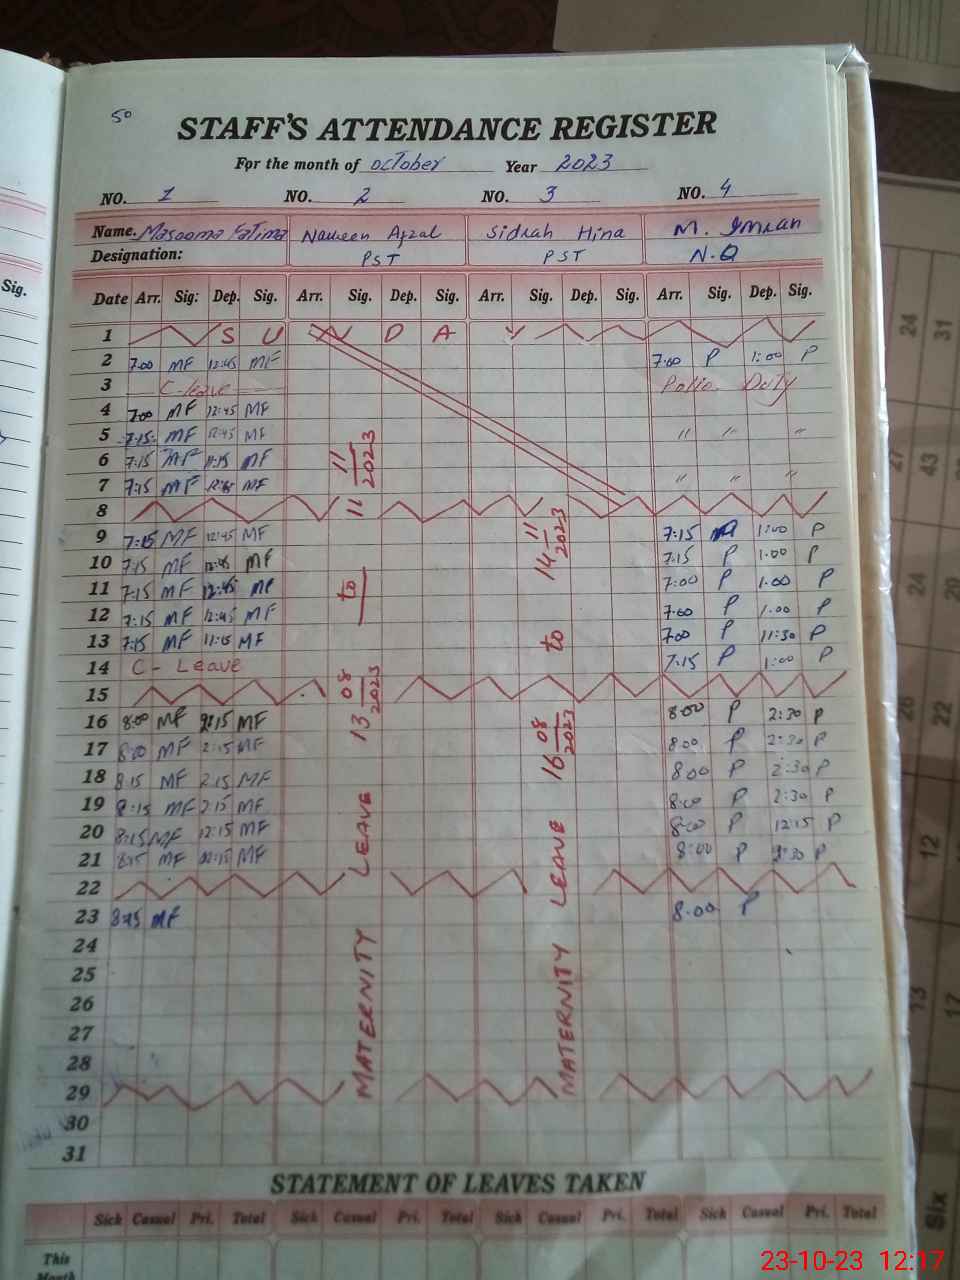 50
STAFF'S ATTENDANCE REGISTER
For the month of October Year 2023
NO. 1 NO. 2 NO. 3 NO. 4
Name. Masooma Fatima Naureen Afzal Sidrah Hina M. Imran
Designation: PST PST N.Q
Sig.
Date Arr. Sig: Dep. Sig. Arr. Sig. Dep. Sig. Arr. Sig. Dep. Sig. Arr. Sig. Dep. Sig.
1 S U N D A Y
2 7:00 MF 12:45 MF 7:00 P 1:00 P
3 C-leave Polio Duty
4 7:00 MF 12:45 MF
5 7:15 MF 12:45 MF " " "
6 7:15 MF 11:15 MF
7 7:15 MF 12:45 MF " " "
8
9 7:15 MF 12:45 MF 7:15 1:00 P
10 7:15 MF 12:45 MF 7:15 P 1:00 P
11 7:15 MF 12:45 MF 7:00 P 1:00 P
12 7:15 MF 12:45 MF 7:00 P 1:00 P
13 7:15 MF 11:15 MF 7:00 P 11:30 P
14 C- Leave 7:15 P 1:00 P
15
16 8:00 MF 2:15 MF 8:00 P 2:30 P
17 8:00 MF 2:15 MF 8:00 P 2:30 P
18 8:15 MF 2:15 MF 8:00 P 2:30 P
19 8:15 MF 2:15 MF 8:00 P 2:30 P
20 8:15 MF 12:15 MF 8:00 P 12:15 P
21 8:15 MF 8:00 P 2:30 P
22
23 8:15 MF 8:00 P
24
25
26
27
28
29
30
31
MATERNITY LEAVE 13 08 2023 to 11 11 2023
MATERNITY LEAVE 16 08 2023 to 14 11 2023
STATEMENT OF LEAVES TAKEN
Sick Casual Pri. Total Sick Casual Pri. Total Sick Casual Pri. Total Sick Casual Pri. Total
This
Month
24 31
27 43
24 20
26 22
12
13 17
Six
23-10-23 12:17